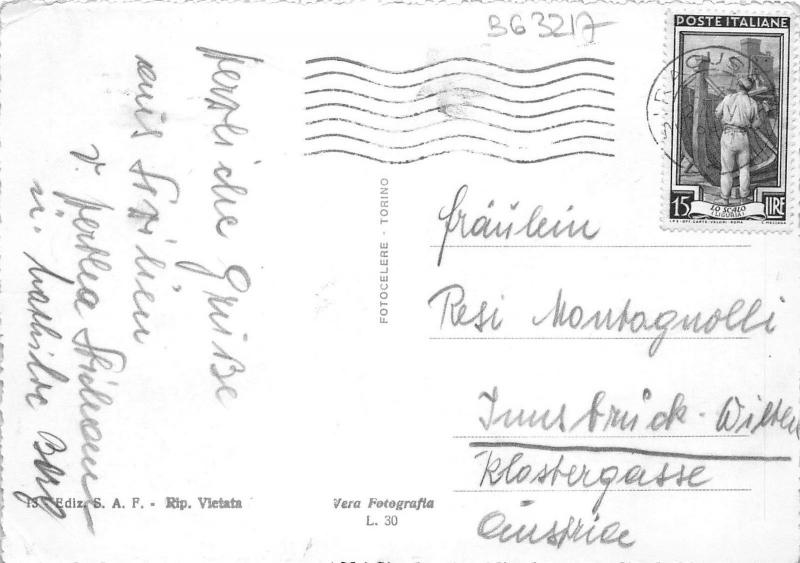 B63217
POSTE ITALIANE
SIRACUSA
15 LIRE
LO SCALO
(LIGURIA)
herzliche Grüße
aus Sizilien
v. Hertha
u. Mathilde
FOTOCELERE - TORINO
Fräulein
Resi Montagnolli
Innsbruck-Wilten
Klostergasse
Austria
13 Ediz. S. A. F. - Rip. Vietata
Vera Fotografia
L. 30